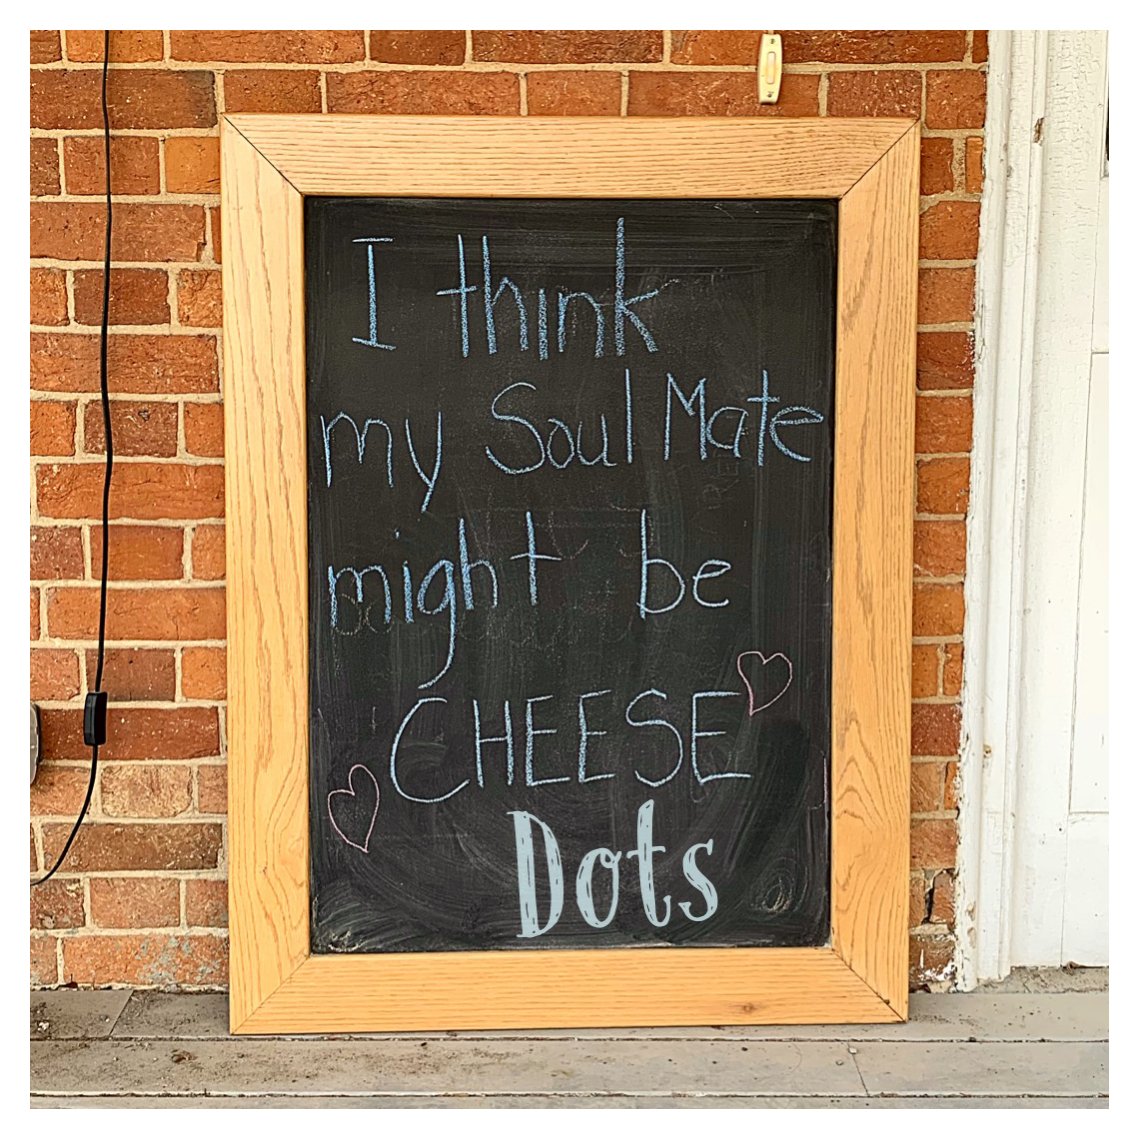 I think
my Soul Mate
might be
CHEESE
Dots